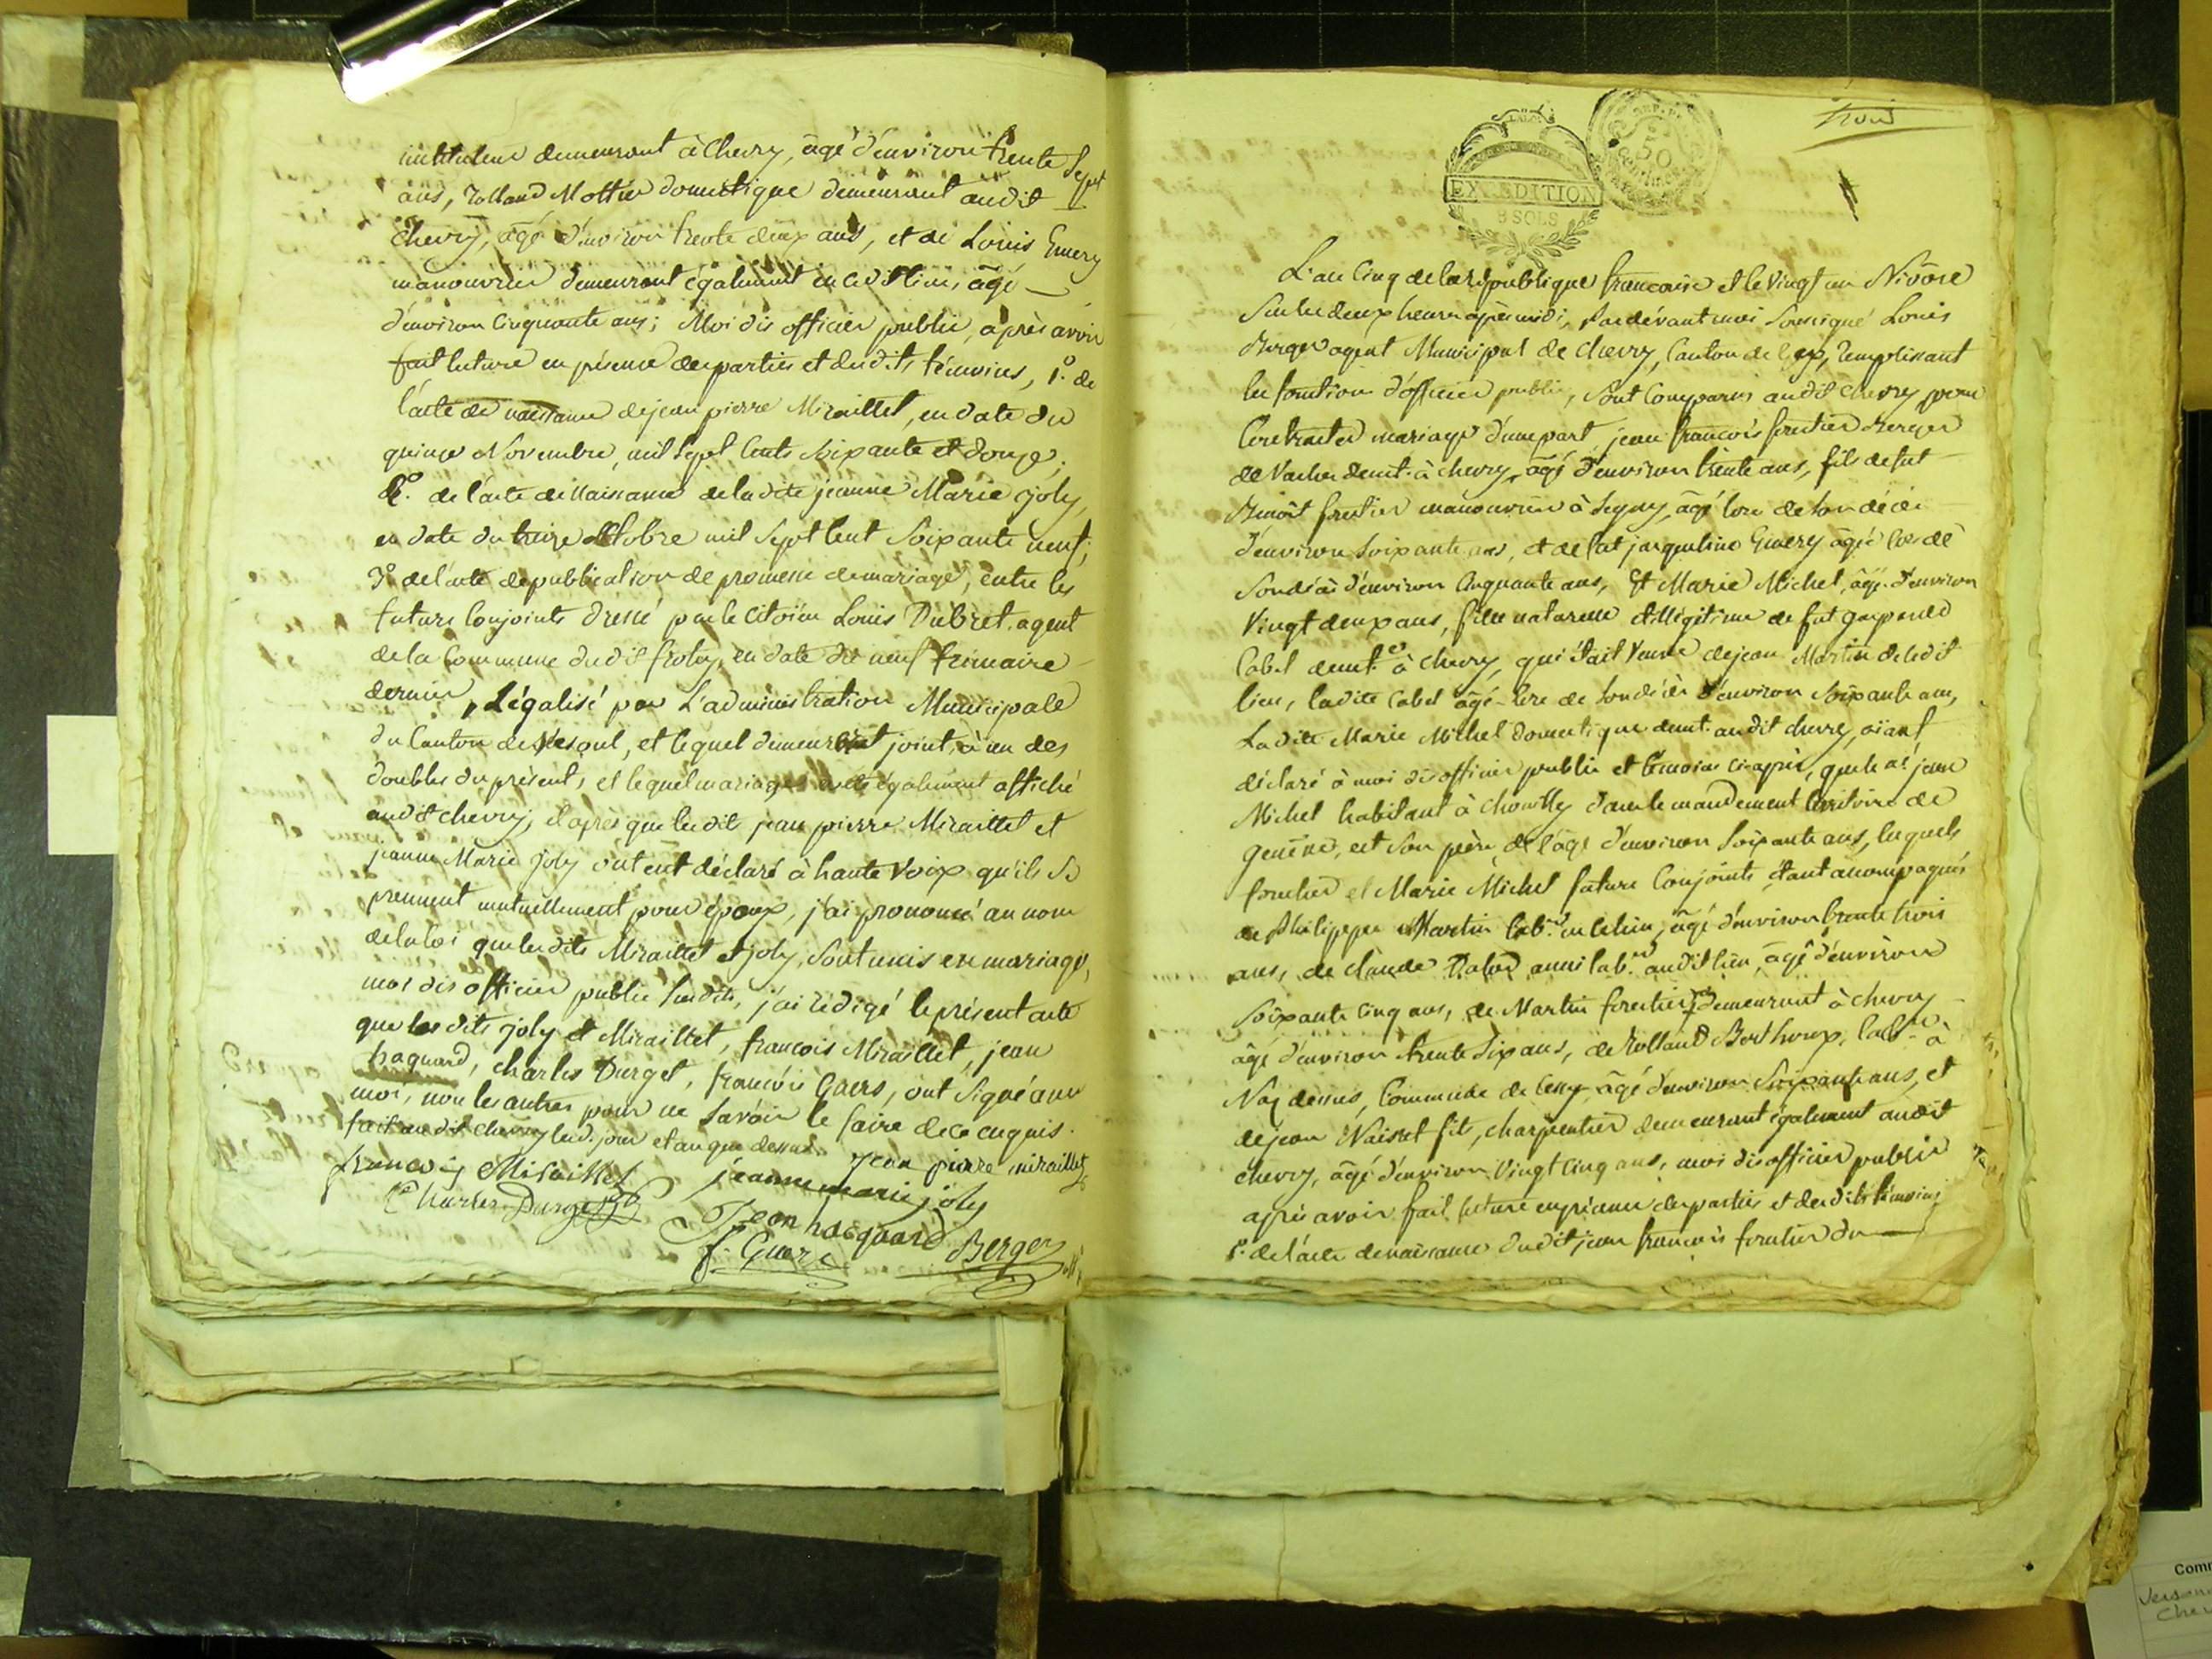 instituteur demeurant à Chevry, âgé d'environ trente Sept
ans, Rolland Mottier domestique demeurant audit
Chevry, âgé d'environ trente deux ans, et de Louis Emery
manouvrier demeurant également en ce dit lieu, âgé
d'environ Cinquante ans; Moi dis officier public, après avoir
fait lecture en présence des parties et desdits témoins, 1º. de
l'acte de naissance de jean pierre Miraillet, en date du
quinze Novembre, mil Sept Cents Soixante et douze;
2º. de l'acte de Naissance de ladite jeanne Marie joly,
en date du treize octobre mil Sept Cent Soixante neuf;
3º de l'acte de publication de promesse de mariage, entre les
futurs Conjoints dressé par le Citoien Louis Dubret. agent
de la Commune dudit froley, en date du neuf frimaire
dernier, Légalisé par L'administration Municipale
du Canton de Vesoul, et lequel demeurent joint, à un des
doubles du présent, et lequel mariage a été également affiché
audit chevry, et après que ledit jean pierre Miraillet et
jeanne Marie joly ont eut déclaré à haute Voix qu'ils Se
prennent mutuellement pour époux, j'ai prononcé au nom
de la loi que lesdits Miraillet et joly, Sont unis en mariage,
moi dis officier public Susdit, j'ai rédigé le présent acte
que lesdits joly et Miraillet, françois Miraillet, jean
haquard, Charles Durget, françois Guers, ont Signé avec
moi, non les autres pour ne Savoir le faire de ce enquis.
fait audit chevry lesd. jour et an que dessus.
francois Miraillet jean pierre miraillet
Charles Durget jeanne marie joly
Jean haquard
f. Guers Berger
EXPEDITION
8 SOLS
50
Trois
L'an Cinq de la république francaise et le Vingt un Nivôse
Sur les deux heures après midi, Pardevant moi Soussigné Louis
Berger agent Municipal de chevry, Canton de Gex, Remplissant
les fonctions d'officier public, Sont Comparus audit Chevry pour
Contracter mariage d'une part jean françois forestier Berger
de Vaches demt. à chevry, âgé d'environ trente ans, fils de fut
Benoît forestier manouvrier à Segny, âgé lors de Son décès
d'environ Soixante ans, et de fut jacqueline Emery âgée lors de
Son décès d'environ Cinquante ans, Et Marie Michel, âgé d'environ
Vingt deux ans, fille naturelle et illégitime de fut gasparde
Cabel demt. à Chevry, qui était Veuve de jean Martin de ledit
lieu, ladite Cabel âgé lors de Son décès d'environ Soixante ans,
Ladite Marie Michel domestique demt. audit chevry, aiant
déclaré à moi dis officier public et témoins ci-après, que le né jean
Michel habitant à Chouilly dans le mandement territoire de
genève, est Son père, de l'âge d'environ Soixante ans, lesquels
forestier et Marie Michel futurs Conjoints étant accompagnés
de Philippe Martin lab.r en ce lieu, âgé d'environ trente trois
ans, de Claude aussi lab.r audit lieu, âgé d'environ
Soixante Cinq ans, de Martin forestier demeurant à chevry
âgé d'environ trente Six ans, de Rolland Berthoux, lab.r à
Naz dessus, Commune de Cessy âgé d'environ Soixante ans, et
de jean Naisset fils, charpentier demeurant également audit
chevry, âgé d'environ Vingt Cinq ans, moi dis officier public
après avoir fait lecture en présence des parties et desdits témoins
1º. de l'acte de naissance dudit jean francois forestier du